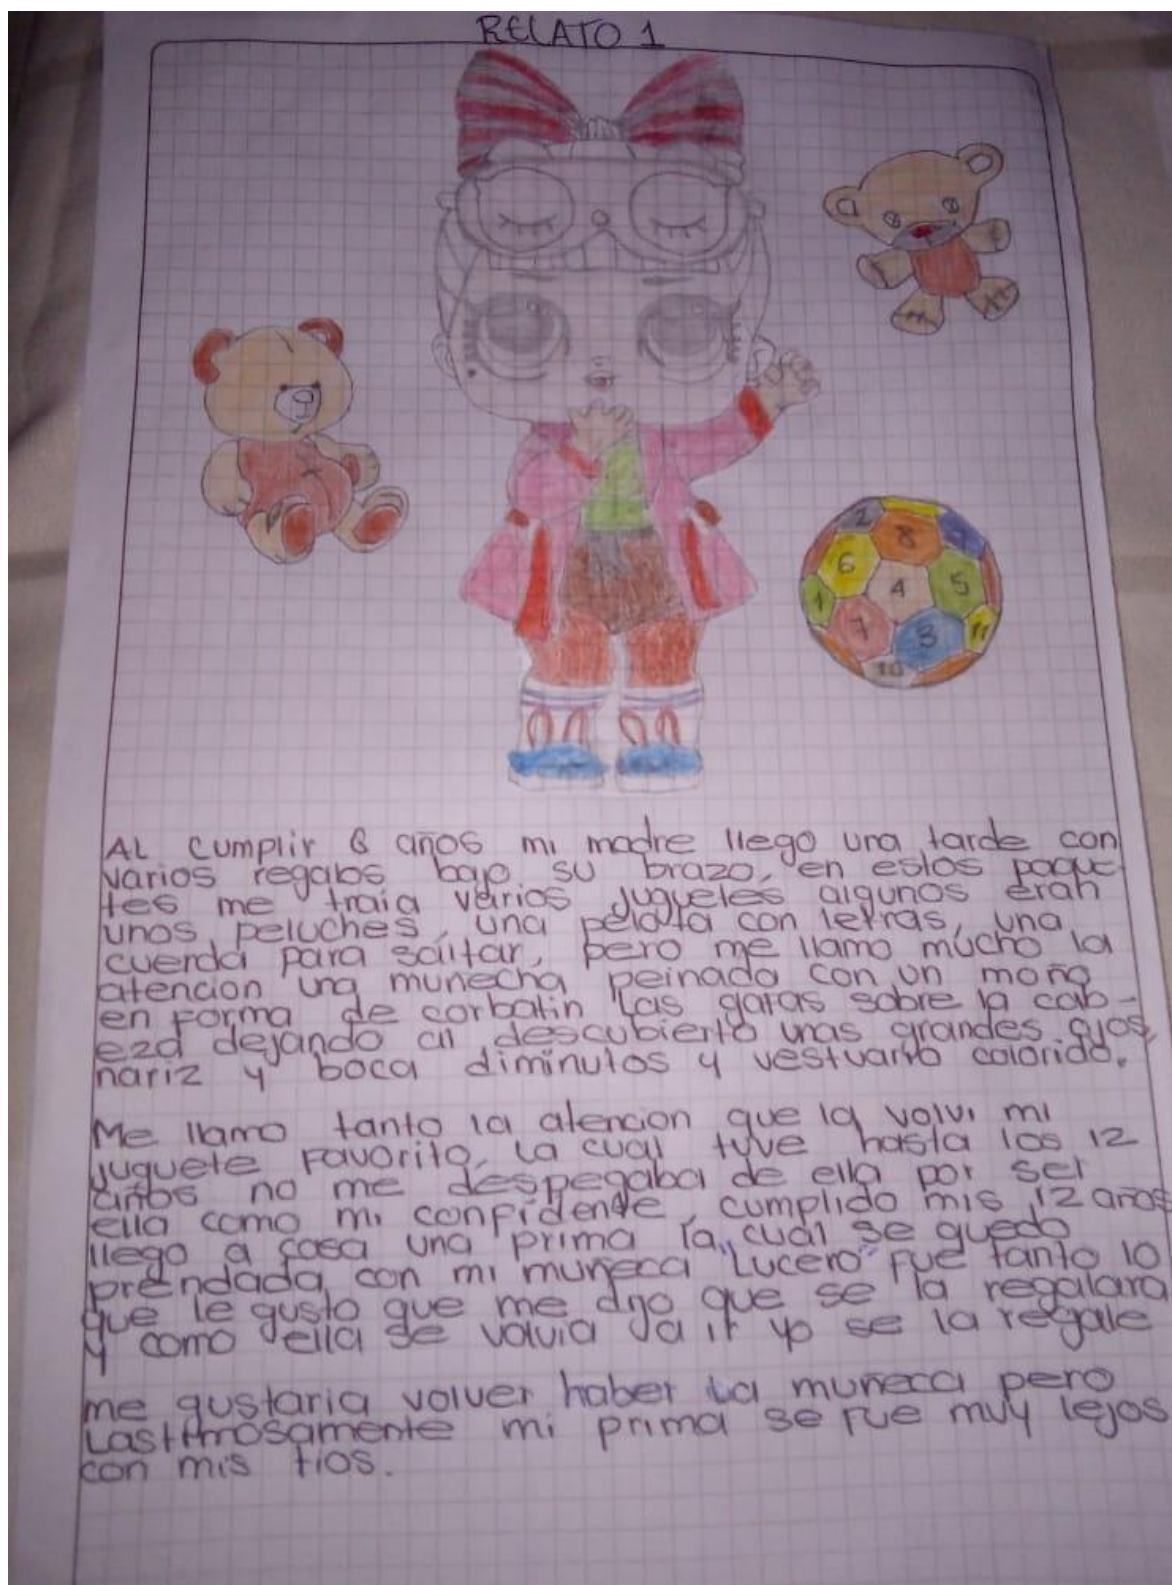 RELATO 1
2
8
6
4
5
1
7
3
11
10
AL cumplir 6 años mi madre llego una tarde con
varios regalos bajo su brazo, en estos paque
tes me traia varios juguetes algunos eran
unos peluches, una pelota con letras, una
cuerda para saltar, pero me llamo mucho la
atencion una muñecha peinado con un moño
en forma de corbatin las gafas sobre la cab-
eza dejando al descubierto unas grandes ojos,
nariz y boca diminutos y vestuario colorido.
Me llamo tanto la atencion que la volvi mi
juguete favorito, la cual tuve hasta los 12
años no me despegaba de ella por ser
ella como mi confidente, cumplido mis 12 años
llego a casa una prima la cual se quedo
prendada con mi muñeca "Lucero" fue tanto lo
que le gusto que me dijo que se la regalara
y como ella se volvia a ir yo se la regale
me gustaria volver haber la muñeca pero
Lastimosamente mi prima se fue muy lejos
con mis tios.